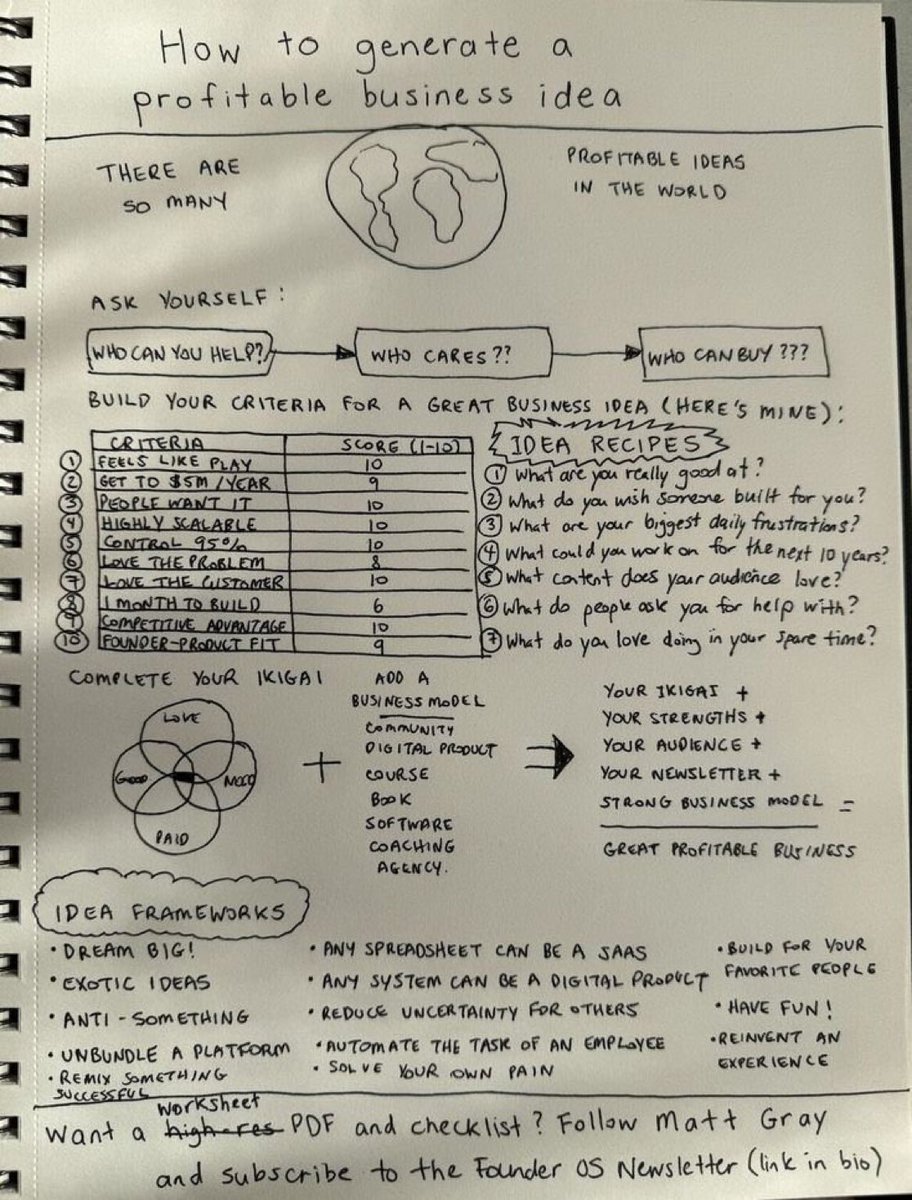 How to generate a
profitable business idea
THERE ARE
SO MANY
PROFITABLE IDEAS
IN THE WORLD
ASK YOURSELF:
WHO CAN YOU HELP?
WHO CARES??
WHO CAN BUY ???
BUILD YOUR CRITERIA FOR A GREAT BUSINESS IDEA (HERE'S MINE):
CRITERIA SCORE (1-10)
1 FEELS LIKE PLAY 10
2 GET TO $5M/YEAR 9
3 PEOPLE WANT IT 10
4 HIGHLY SCALABLE 10
5 CONTROL 95% 10
6 LOVE THE PROBLEM 8
7 LOVE THE CUSTOMER 10
8 1 MONTH TO BUILD 6
9 COMPETITIVE ADVANTAGE 10
10 FOUNDER-PRODUCT FIT 9
IDEA RECIPES
1 What are you really good at?
2 What do you wish someone built for you?
3 What are your biggest daily frustrations?
4 What could you work on for the next 10 years?
5 What content does your audience love?
6 What do people ask you for help with?
7 What do you love doing in your spare time?
COMPLETE YOUR IKIGAI
LOVE
GOOD
NEED
PAID
+
ADD A
BUSINESS MODEL
COMMUNITY
DIGITAL PRODUCT
COURSE
BOOK
SOFTWARE
COACHING
AGENCY.
YOUR IKIGAI +
YOUR STRENGTHS +
YOUR AUDIENCE +
YOUR NEWSLETTER +
STRONG BUSINESS MODEL =
GREAT PROFITABLE BUSINESS
IDEA FRAMEWORKS
• DREAM BIG!
• EXOTIC IDEAS
• ANTI-SOMETHING
• UNBUNDLE A PLATFORM
• REMIX SOMETHING
SUCCESSFUL
• ANY SPREADSHEET CAN BE A SAAS
• ANY SYSTEM CAN BE A DIGITAL PRODUCT
• REDUCE UNCERTAINTY FOR OTHERS
• AUTOMATE THE TASK OF AN EMPLOYEE
• SOLVE YOUR OWN PAIN
• BUILD FOR YOUR
FAVORITE PEOPLE
• HAVE FUN!
• REINVENT AN
EXPERIENCE
worksheet
Want a high-res PDF and checklist? Follow Matt Gray
and subscribe to the Founder OS Newsletter (link in bio)